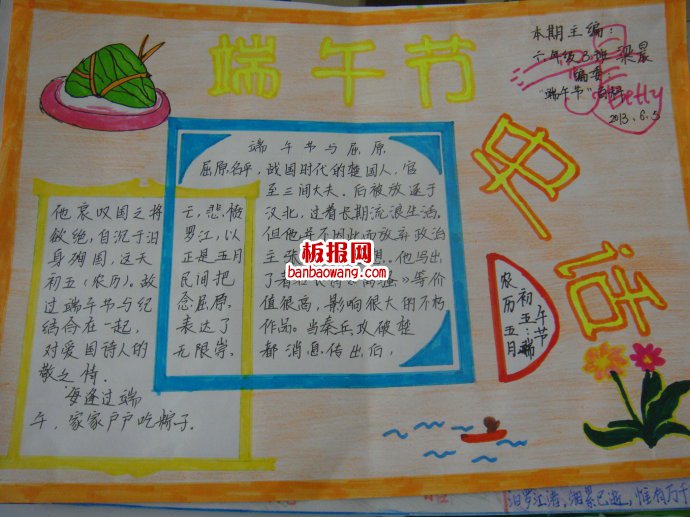 端午节
本期主编：
六年级3班 梁晨
编委：
Betty
2013.6.5
话
端午节与屈原
屈原名平，战国时代的楚国人，官
至三闾大夫。后被放逐于
汉北，过着长期流浪生活。
但他并不因此而放弃政治
主张
他写出
了著
》等价
值很高，影响很大的不朽
作品。当秦兵攻破楚
都消息传出后，
他哀叹国之将亡，悲愤
欲绝，自沉于汨罗江，以
身殉国，这天正是五月
初五（农历）。故民间把
过端午节与纪念屈原
结合在一起，表达了
对爱国诗人的无限崇
敬之情.
每逢过端
午，家家户户吃粽子.
农历五月
初五：端
午节
板报网
banbaowang.com
汨罗江渚，湘累已逝，惟有万千